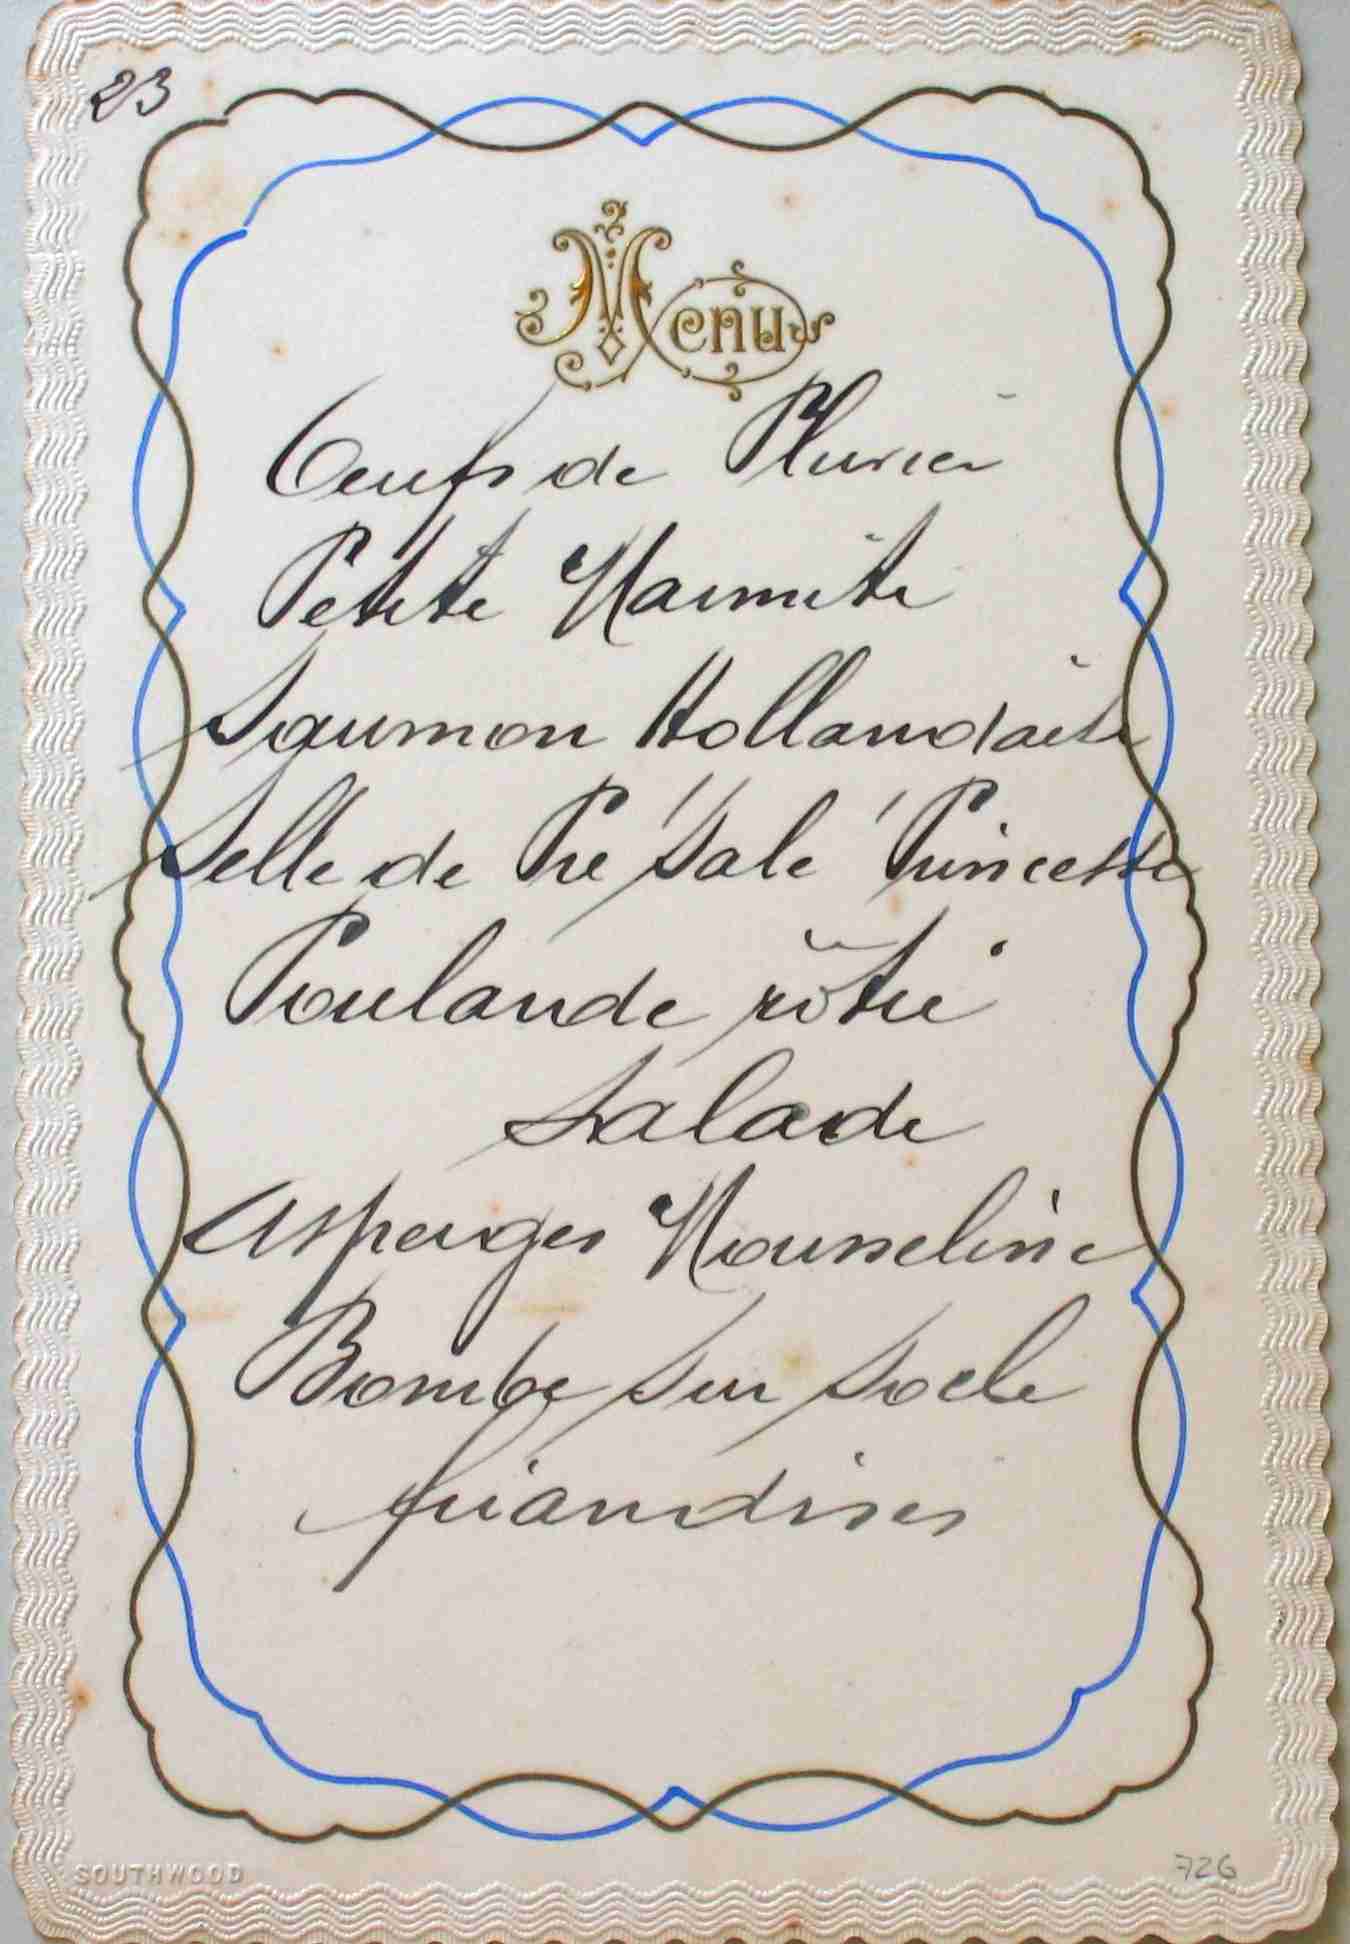 23
Menu
Oeufs de Pluvier
Petite Marmite
Saumon Hollandaise
Selle de Pré Salé Princesse
Poularde rôtie
Salade
Asperges Mousseline
Bombe sur Socle
friandises
SOUTHWOOD
726